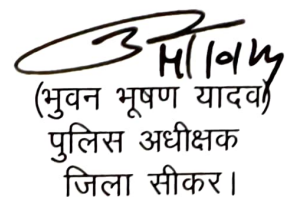 (भुवन भूषण यादव)
पुलिस अधीक्षक
जिला सीकर।